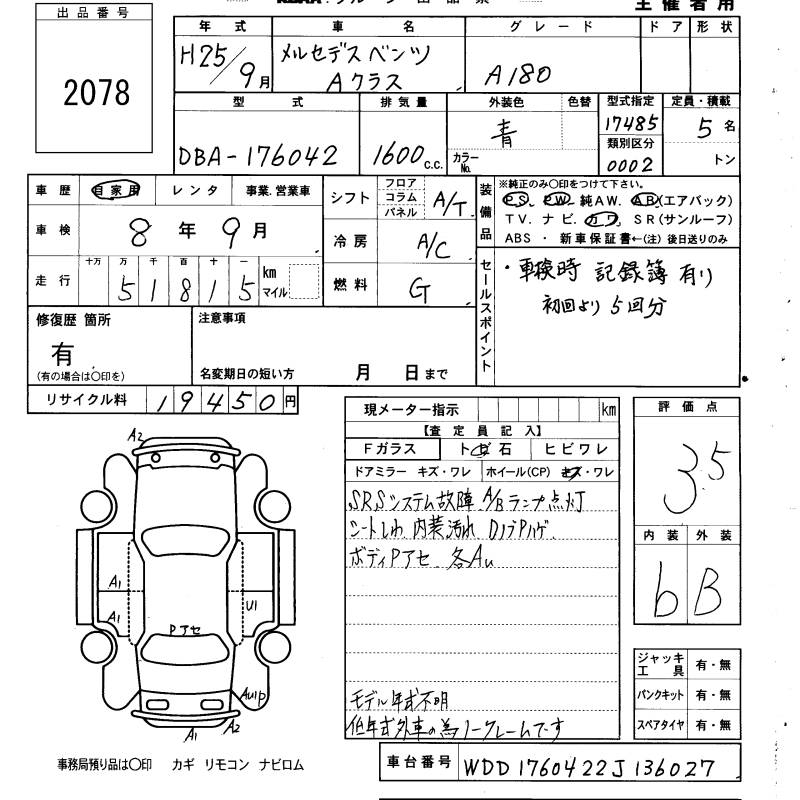 主催者用
出品番号
2078
年式 車名 グレード ドア 形状
H25/9月 メルセデスベンツ Aクラス A180
型式 排気量 外装色 色替 型式指定 定員・積載
DBA-176042 1600c.c. 青 カラーNo. 17485 5名
類別区分 0002 トン
車歴 自家用 レンタ 事業.営業車
車検 8年9月
走行 十万 万 千 百 十 一 km マイル
51815
シフト フロア コラム パネル A/T
冷房 A/C
燃料 G
装備品
※純正のみ〇印をつけて下さい。
PS. PW. 純AW. AB(エアバック)
TV. ナビ. カワ. SR(サンルーフ)
ABS ・ 新車保証書←(注) 後日送りのみ
セールスポイント
・車検時 記録簿 有り
初回より 5回分
修復歴 箇所
有
(有の場合は〇印を)
注意事項
名変期日の短い方 月 日まで
リサイクル料 19450円
現メーター指示 km
【査定員記入】
Fガラス トビ石 ヒビワレ
ドアミラー キズ・ワレ ホイール(CP) キズ・ワレ
SRSシステム故障 A/Bランプ点灯
シートしわ 内装汚れ DノブPハゲ
ボディPアセ 各Au
モデル年式不明
低年式外車の為ノークレームです
評価点
3.5
内装 外装
b B
ジャッキ工具 有・無
パンクキット 有・無
スペアタイヤ 有・無
A2
A1
A1
U1
Pアセ
AU1P
A1
A2
事務局預り品は〇印 カギ リモコン ナビロム
車台番号 WDD1760422J136027